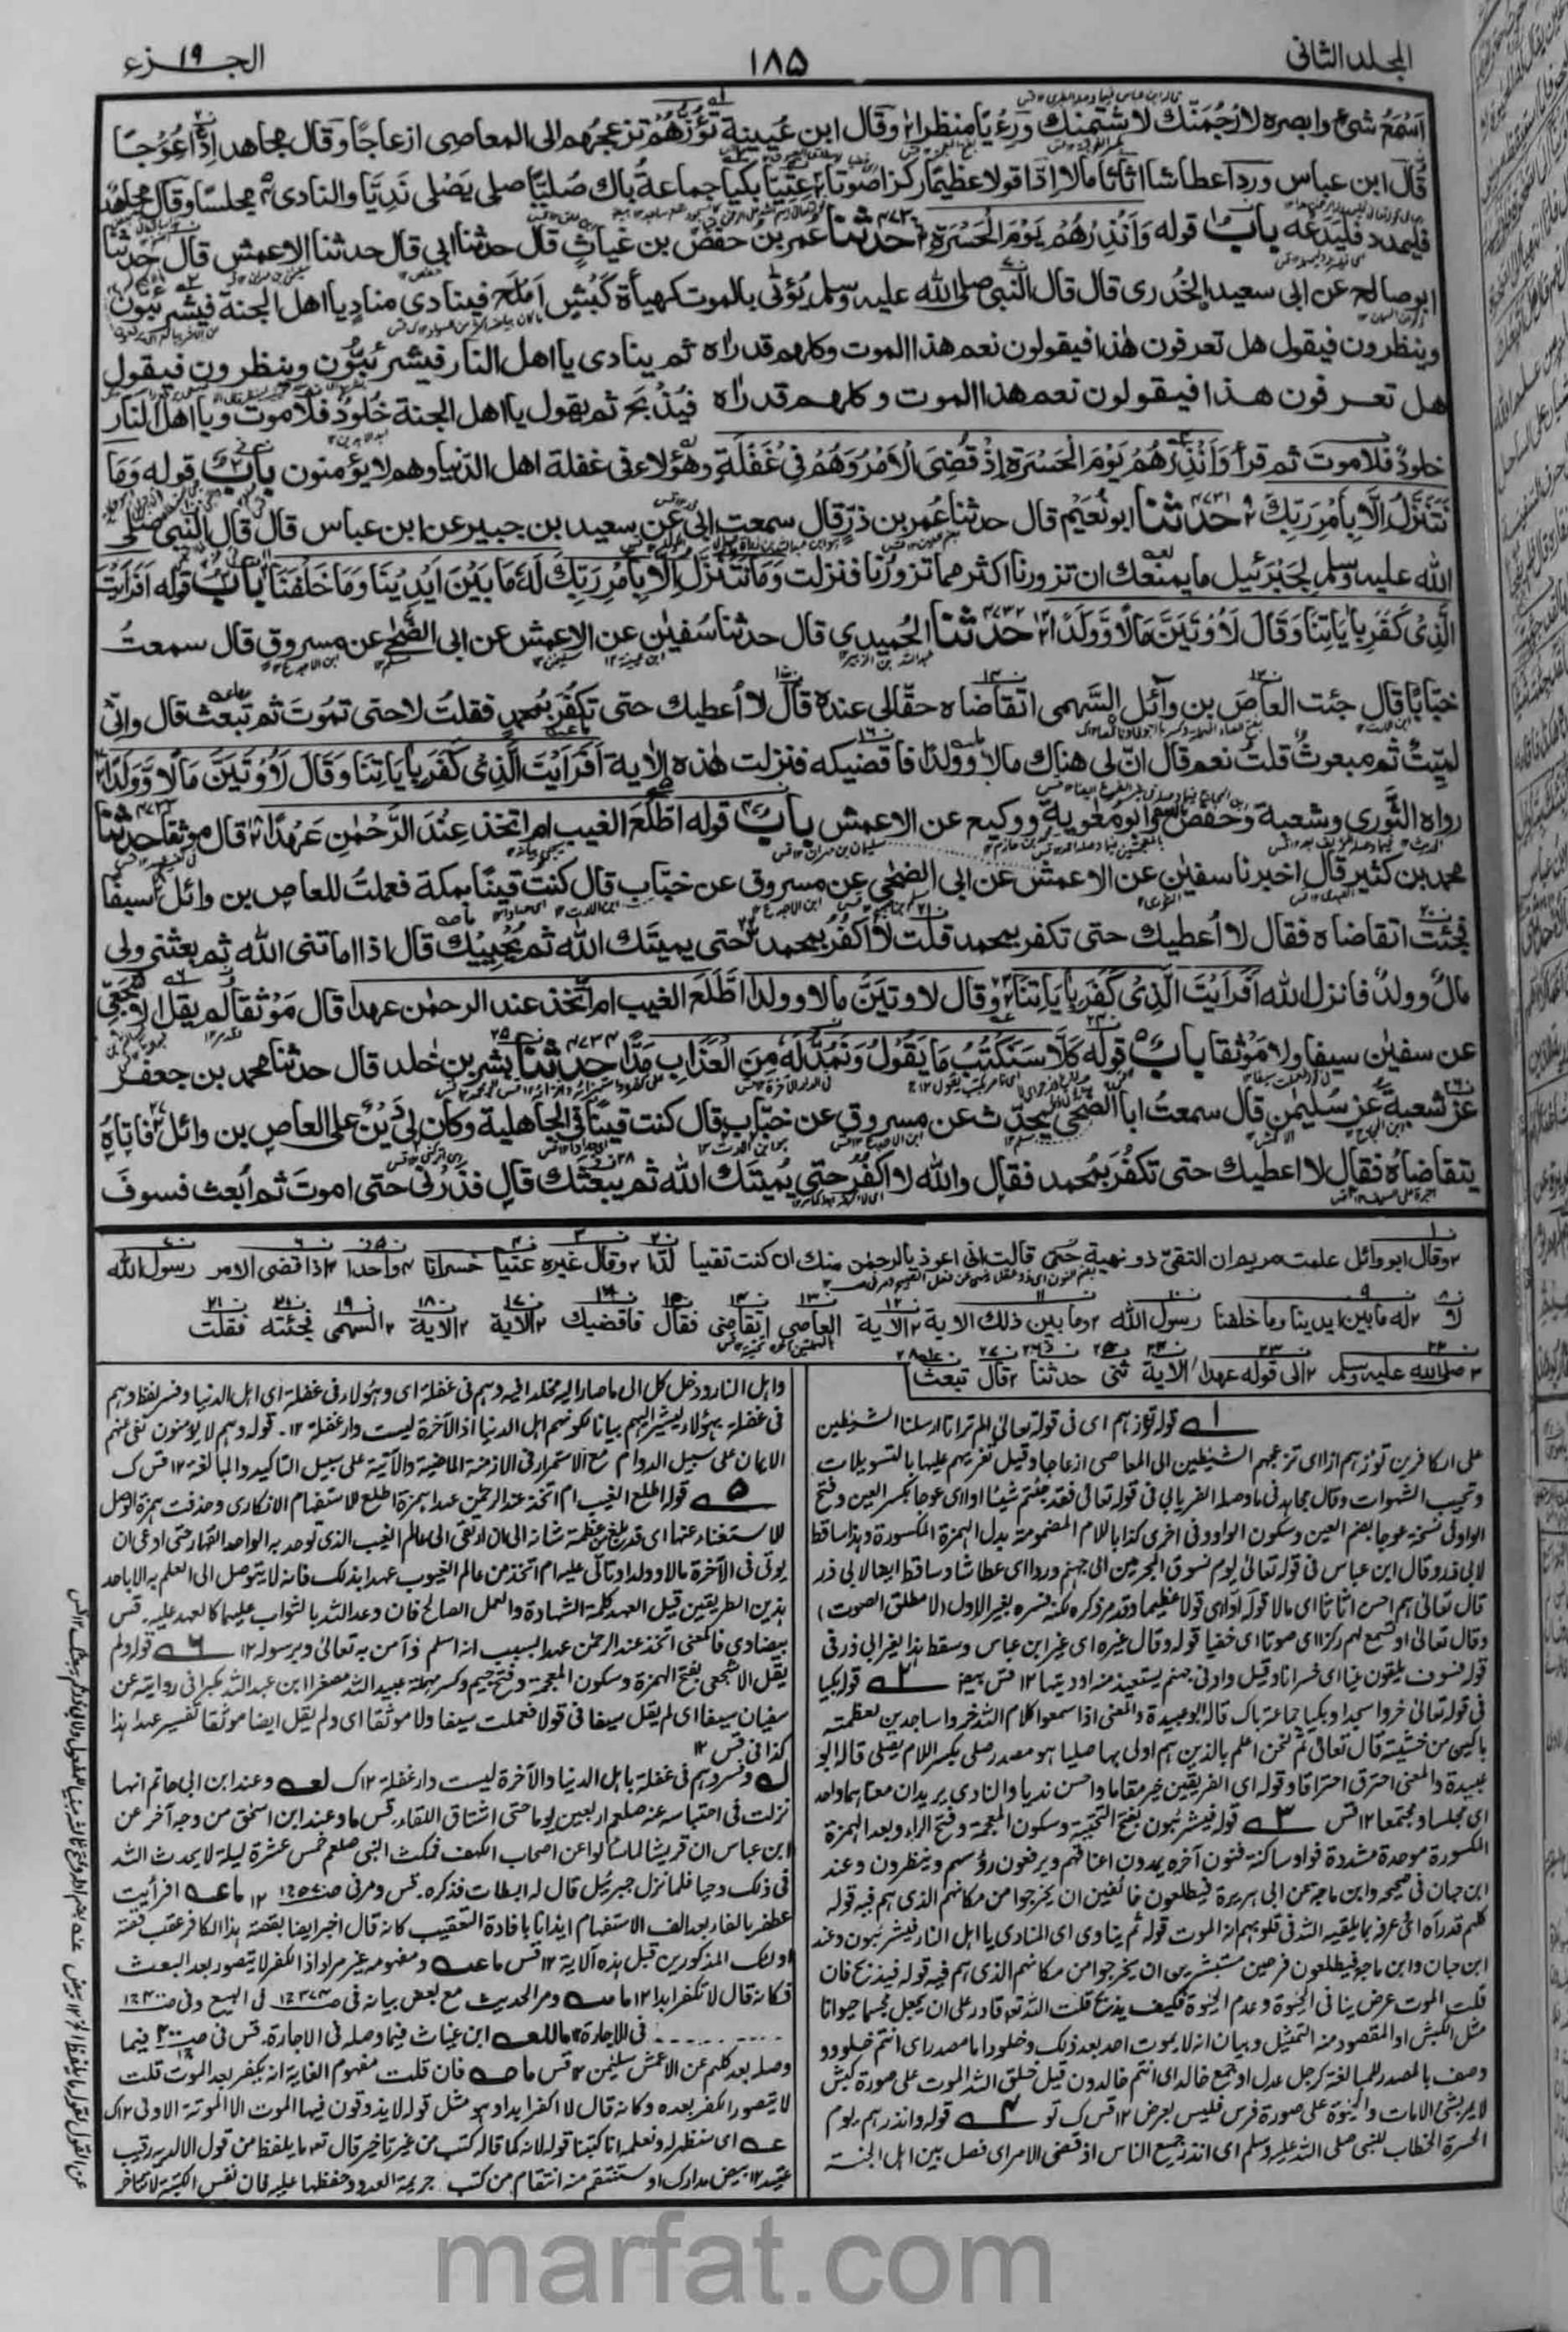 المجلد الثانی ۱۸۵ الجزء ۱۹
اَسْمَعُ شیءٍ وابصره لاَرْجُمَنَّكَ لاشتمنك وَرِءْيًا منظرا وقال ابن عُيينة تَؤُزُّهُمْ تزعجهم الى المعاصى ازعاجًا وقال مجاهد اِدًّا عِوَجًا
قال ابن عباس وردا عطاشا اثاثا مالا اِدًّا قولا عظيما ركزا صوتا عِتِيًّا بكيا جماعةُ باك صُلِيًّا صلى يَصْلى نَدِيًّا والنادى مجلسًا وقال مجاهد
فليمدد فليدعه باب قوله وَاَنْذِرْهُمْ يَوْمَ الْحَسْرَةِ حدثنا عمر بن حفص بن غياث قال حدثنا ابى قال حدثنا الاعمش قال حدثنا
ابو صالح عن ابى سعيد الخُدرى قال قال النبى صلى الله عليه وسلم يُؤتٰى بالموت كهيأة كَبْشٍ اَمْلَحَ فينادى منادٍ يا اهل الجنة فيشرئبون
وينظرون فيقول هل تعرفون هٰذا فيقولون نعم هذا الموت وكلهم قد راٰه ثم ينادى يا اهل النار فيشرئبّون وينظرون فيقول
هل تعرفون هذا فيقولون نعم هذا الموت وكلهم قد راٰه فيُذْبَحُ ثم يقول يا اهل الجنة خُلُودٌ فلا موت ويا اهل النار
خلودٌ فلا موت ثم قرأ وَاَنْذِرْهُمْ يَوْمَ الْحَسْرَةِ اِذْ قُضِيَ الْاَمْرُ وَهُمْ فِيْ غَفْلَةٍ وهٰؤلاء فى غفلة اهل الدنيا وهم لا يؤمنون باب قوله وَمَا
نَتَنَزَّلُ اِلَّا بِاَمْرِ رَبِّكَ ۴۷۳۱ حدثنا ابو نُعَيْم قال حدثنا عُمر بن ذرٍّ قال سمعت ابى عن سعيد بن جبير عن ابن عباس قال قال النبى صلى
الله عليه وسلم لِجَبْرَئيل ما يمنعك ان تزورنا اكثر مما تزورُنا فنزلت وَمَا نَتَنَزَّلُ اِلَّا بِاَمْرِ رَبِّكَ لَهٗ مَا بَيْنَ اَيْدِيْنَا وَمَا خَلْفَنَا باب قوله اَفَرَاَيْتَ
الَّذِيْ كَفَرَ بِاٰيَاتِنَا وَقَالَ لَاُوْتَيَنَّ مَالًا وَّوَلَدًا ۴۷۳۲ حدثنا الحُميدى قال حدثنا سُفيٰن عن الاعمش عن ابى الضُّحى عن مسروق قال سمعتُ
خبّابًا قال جئت العاصَ بن وائل السَّهمى اتقاضاه حقًّا لى عنده قال لا اُعطيك حتى تكفُرَ بمُحمدٍ فقلتُ لا حتى تموتَ ثم تبعثَ قال وانّى
لميّتٌ ثم مبعوثٌ قلتُ نعم قال انّ لى هناك مالا وولدا فاقضيكه فنزلت هٰذه الاية اَفَرَاَيْتَ الَّذِيْ كَفَرَ بِاٰيَاتِنَا وَقَالَ لَاُوْتَيَنَّ مَالًا وَّوَلَدًا
رواه الثَّورى وشعبة وحفص وابو معٰوية ووكيع عن الاعمش باب قوله اطَّلَعَ الغيب ام اتخذ عِنْدَ الرَّحْمٰنِ عَهْدًا قال موثقا ۴۷۳۳ حدثنا
محمد بن كثير قال اخبرنا سفيٰن عن الاعمش عن ابى الضحٰى عن مسروق عن خبّاب قال كنت قينًا بمكة فعملتُ للعاص بن وائل سيفًا
فجئت اتقاضاه فقال لا اُعطيك حتى تكفر بمحمد قلت لا اَكْفُرُ بمحمد حتى يميتك الله ثم يُحْيِيْكَ قال اذا اماتنى الله ثم بعثنى ولى
مالٌ وولدٌ فانزل الله اَفَرَاَيْتَ الَّذِيْ كَفَرَ بِاٰيَاتِنَا وقال لاوتينَّ مالا وولدا اطَّلَعَ الغيب ام اتّخذ عند الرحمٰن عهدا قال مَوْثقا لم يقل الاشجعى
عن سفيٰن سيفا ولا مَوْثقا باب قوله كَلَّا سَنَكْتُبُ مَا يَقُوْلُ وَنَمُدُّ لَهٗ مِنَ الْعَذَابِ مَدًّا ۴۷۳۴ حدثنا بشر بن خٰلد قال حدثنا محمد بن جعفر
عن شعبةَ عن سُليمٰن قال سمعتُ ابا الضحٰى يُحدّث عن مسروق عن خبّاب قال كنت قينًا فى الجاهلية وكان لى دَيْنٌ على العاص بن وائل فاتاه
يتقاضاهُ فقال لا اعطيك حتى تكفُرَ بمُحمد فقال والله لا اَكْفُرُ حتى يُميتَك الله ثم يبعثَك قال فذرنى حتى اموتَ ثم اُبعث فسوف
وقال ابو وائل علمت مريم ان التقىّ ذو نهية حتى قالت انى اعوذ بالرحمٰن منك ان كنت تقيا لُدًّا وقال غيره غيّا خسرانا واحدا اذا قضى الامر رسول الله
له ما بين ايدينا وما خلفنا رسول الله وما بين ذلك الاية الاية العاصى اتقاضى فقال فاقضيك الاية الاية السهمى فجئته فقلت
صلى الله عليه وسلم الى قوله عهدا الاية ثنى حدثنا قال تبعث
قوله تؤزهم اى فى قوله تعالى الم تر انا ارسلنا الشيٰطين
على الكافرين تؤزهم ازا اى تزعجهم الشيٰطين الى المعاصى ازعاجا وقيل تغريهم عليها بالتسويلات
وتحبيب الشهوات وقال مجاهد فى ما وصله الفريابى فى قوله تعالى لقد جئتم شيئا ادا اى عوجا بكسر العين وفتح
الواو وفى نسخة عوجا بضم العين وسكون الواو وفى اخرى كذا باللام المضمومة بدل الهمزة المكسورة وهذا ساقط
لابى ذر وقال ابن عباس فى قوله تعالى يوم نسوق المجرمين الى جهنم وردا اى عطاشا وساقط ايضا لابى ذر
قال تعالى هم احسن اثاثا اى مالا قوله ادا اى قولا عظيما وقد مر ذكره لكنه فسره بغير الاول
وقال تعالى او تسمع لهم ركزا اى صوتا اى خفيا قوله وقال غيره اى غير ابن عباس وسقط هذا لغير ابى ذر فى
قوله فسوف يلقون غيا اى خسرانا وقيل واد فى جهنم يستعيذ منه اوديتها ۱۲ قس بيض قوله بكيا
فى قوله تعالى خروا سجدا وبكيا جماعة باك قاله ابو عبيدة والمعنى اذا سمعوا كلام الله خروا ساجدين لعظمته
باكين من خشيته قال تعالى ثم لنحن اعلم بالذين هم اولى بها صليا هو مصدر صلى بكسر اللام يصلى قاله ابو
عبيدة والمعنى احترق احتراقا وقوله اى الفريقين خير مقاما واحسن نديا والنادى يريد ان معناهما واحد
اى مجلسا ومجتمعا ۱۲ قس قوله فيشرئبون بفتح التحتية وسكون المعجمة وفتح الراء وبعد الهمزة
المكسورة موحدة مشددة فواو ساكنة فنون آخره يمدون اعناقهم ويرفعون رؤسهم وينظرون وعند
ابن حبان فى صحيحه وابن ماجة عن ابى هريرة فيطلعون خائفين ان يخرجوا من مكانهم الذى هم فيه قوله
كلهم قد رآه اى عرفه بما يلقيه الله فى قلوبهم انه الموت قوله ثم ينادى اى المنادى يا اهل النار فيشرئبون وعند
ابن حبان وابن ماجه فيطلعون فرحين مستبشرين ان يخرجوا من مكانهم الذى هم فيه قوله فيذبح فان
قلت الموت عرض ينافى الحيوة وعدم الحيوة فكيف يذبح قلت الله تع قادر على ان يجعل مجسما حيوانا
مثل الكبش او المقصود منه التمثيل وبيان انه لا يموت احد بعد ذلك وخلود اما مصدر اى انتم خلود و
وصف بالمصدر للمبالغة كرجل عدل او جمع خالد اى انتم خالدون قيل خلق الله الموت على صورة كبش
لا يمر بشئ الا مات والحيوة على صورة فرس فليس بعرض ۱۲ قس ك تو قوله وانذرهم يوم
الحسرة الخطاب للنبى صلى الله عليه وسلم اى انذر جميع الناس اذ قضى الامر اى فصل بين اهل الجنة
واهل النار ودخل كل الى ما صار اليه مخلدا فيه وهم فى غفلة اى وهؤلاء فى غفلة اى اهل الدنيا وفسر لفظ وهم
فى غفلة بهؤلاء ليشير اليهم بيانا لكونهم اهل الدنيا اذ الآخرة ليست دار غفلة ۱۲. قوله وهم لا يؤمنون نفى عنهم
الايمان على سبيل الدوام مع الاستمرار فى الازمنة الماضية والآتية على سبيل التاكيد والمبالغة ۱۲ قس ك
قوله اطلع الغيب ام اتخذ عند الرحمٰن عهدا بهمزة اطلع للاستفهام الانكارى وحذفت همزة الوصل
للاستغناء عنها اى قد بلغ من عظمة شانه الى ان ارتقى الى عالم الغيب الذى توحد به الواحد القهار حتى ادعى ان
يوتى فى الآخرة مالا وولدا وتالى عليه ام اتخذ من عالم الغيوب عهدا بذلك فانه لا يتوصل الى العلم به الا باحد
هذين الطريقين قيل العهد كلمة الشهادة والعمل الصالح فان وعد الله بالثواب عليهما كالعهد عليه. قس
بيضاوى
يقل الاشجعى بفتح الهمزة وسكون المعجمة وفتح جيم وكسر مهملة عبيد الله مصغرا ابن عبد الله مكبرا فى روايته عن
سفيان سيفا اى لم يقل سيفا فى قوله فعملت سيفا ولا موثقا اى ولم يقل ايضا موثقا تفسير عهدا هذا
كذا فى قس ۱۲
وفسر وهم فى غفلة باهل الدنيا والآخرة ليست دار غفلة ۱۲ ك وعند ابن ابى حاتم انها
نزلت فى احتباسه عنه صلعم اربعين يوما حتى اشتاق اللقاء. قس وعند ابن اسحٰق من وجه آخر عن
ابن عباس ان قريشا لما سألوا عن اصحاب الكهف فمكث النبى صلعم خمس عشرة ليلة لا يحدث الله
فى ذلك وحيا فلما نزل جبرئيل قال له ابطات فذكره. قس ومر فى افرأيت
عطف بالفاء بعد الف الاستفهام ايذانا بافادة التعقيب كانه قال اخبر ايضا بقصة هذا الكافر عقب قصة
اولئك المذكورين قبل هذه الآية ۱۲ قس ومفهومه غير مراد اذ الكفر لا يتصور بعد البعث
فكانه قال لا تكفر ابدا ۱۲ ومر الحديث مع بعض بيانه فى البيع وفى
فى الاجارة ابن غياث فيما وصله فى الاجارة. قس
وصله بعد كلهم عن الاعمش سليمٰن ۱۲ قس فان قلت مفهوم الغاية انه يكفر بعد الموت قلت
لا يتصور الكفر بعده وكانه قال لا اكفر ابدا وهو مثل قوله لا يذوقون فيها الموت الا الموتة الاولى ۱۲ ك
اى سنظهر له ونعلمه انا كتبنا قوله لانه كما قاله كتب من غير تاخير قال تعه ما يلفظ من قول الا لديه رقيب
عتيد ۱۲ بيض مدارك او سننتقم منه انتقام من كتب جريمة العدو وحفظها عليه فان نفس الكتبة لا تتاخر
marfat.com